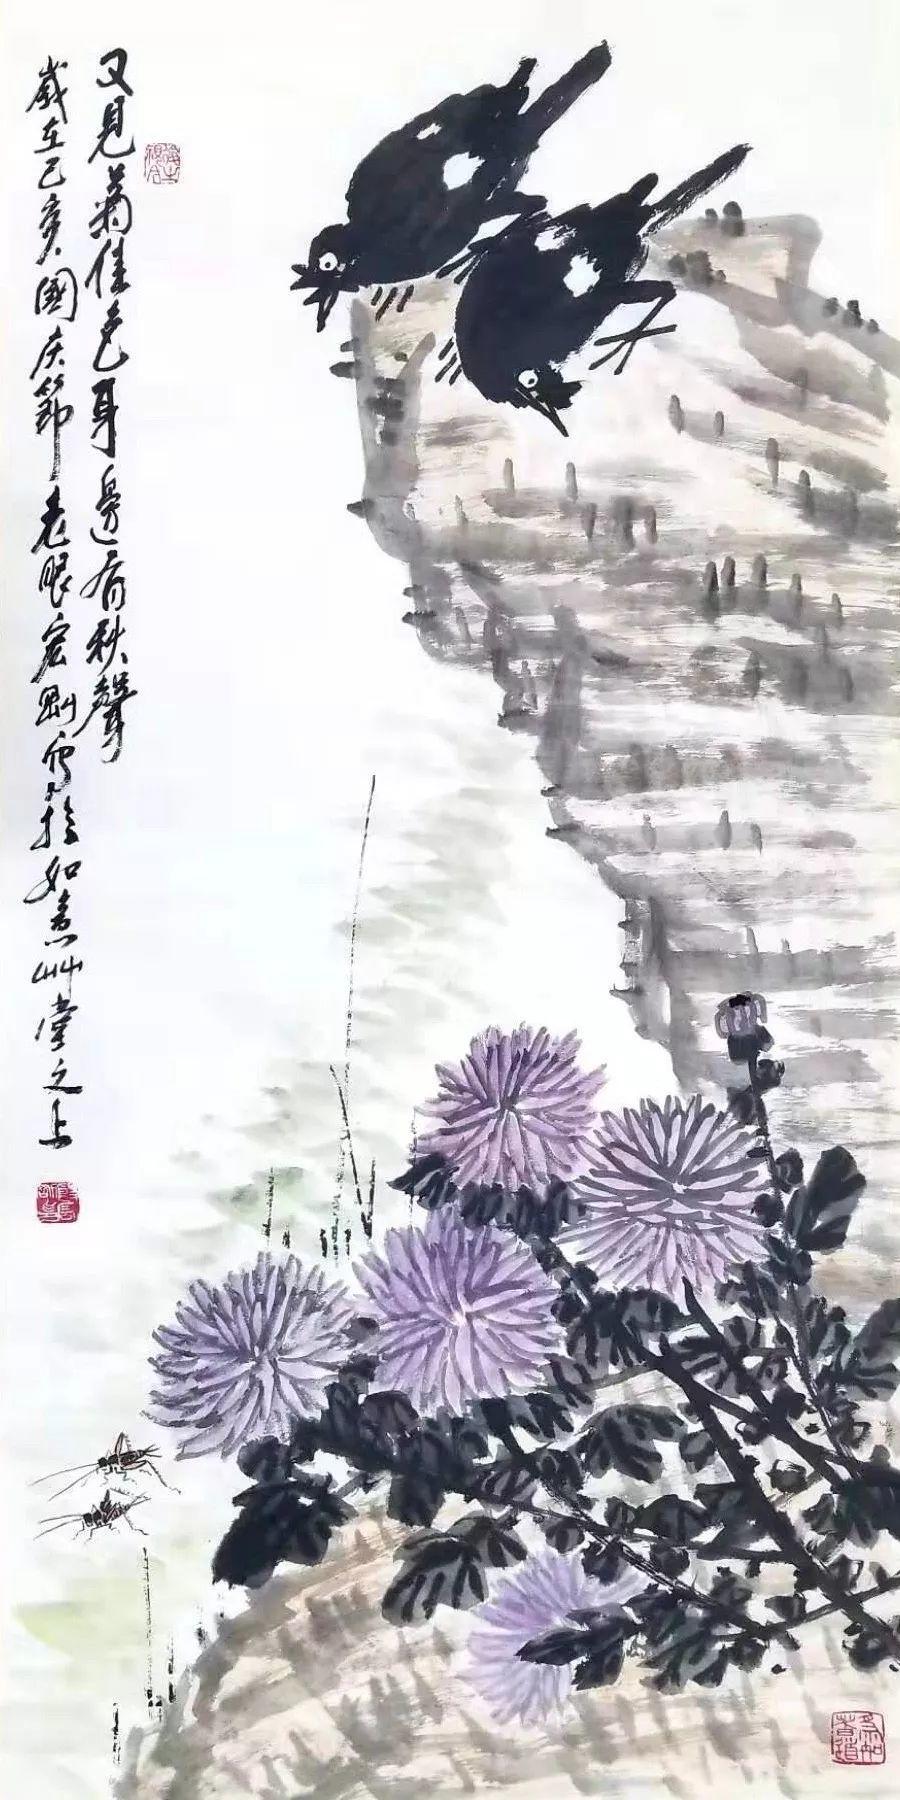 又見菊佳色耳邊有秋聲
歲在己亥國慶節老眼宏剛寫於如意艸堂之上